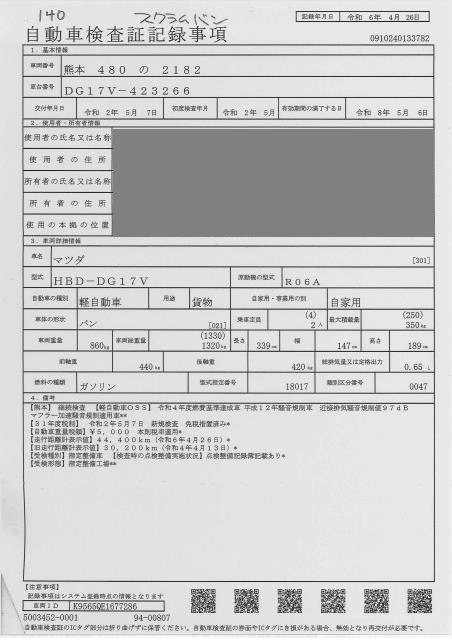 140 スクラムバン
記録年月日 令和 6年 4月 26日
自動車検査証記録事項
0910240133782
1. 基本情報
車両番号 熊本 480 の 2182
車台番号 DG17V-423266
交付年月日 令和 2年 5月 7日 初度検査年月 令和 2年 5月 有効期間の満了する日 令和 8年 5月 6日
2. 使用者・所有者情報
使用者の氏名又は名称
使用者の住所
所有者の氏名又は名称
所有者の住所
使用の本拠の位置
3. 車両詳細情報
車名 マツダ [301]
型式 HBD-DG17V 原動機の型式 R06A
自動車の種別 軽自動車 用途 貨物 自家用・事業用の別 自家用
車体の形状 バン [021] 乗車定員 (4) 2人 最大積載量 (250) 350kg
車両重量 860kg 車両総重量 (1330) 1320kg 長さ 339cm 幅 147cm 高さ 189cm
前軸重 440kg 後軸重 420kg 総排気量又は定格出力 0.65 L
燃料の種類 ガソリン 型式指定番号 18017 類別区分番号 0047
4. 備考
【熊本】 継続検査 【軽自動車OSS】 令和4年度燃費基準達成車 平成12年騒音規制車 近接排気騒音規制値97dB
マフラー加速騒音規制適用車**
【31年度税制】 令和2年5月7日 新規検査 免税措置済み*
【自動車重量税額】¥5,000 本則税率適用*
【走行距離計表示値】44,400km (令和6年4月26日)*
【旧走行距離計表示値】30,200km (令和4年4月13日)*
【受検種別】指定整備車 【検査時の点検整備実施状況】点検整備記録簿記載あり*
【受検形態】指定整備工場**
[注意事項]
記録事項はシステム登録時点の情報となります
車両ID K9565QE1677286
5003452-0001 94-00807
自動車検査証のICタグ部分は折り曲げずに保管ください。自動車検査証の券面やICタグにき損がある場合、無効となり再交付が必要です。